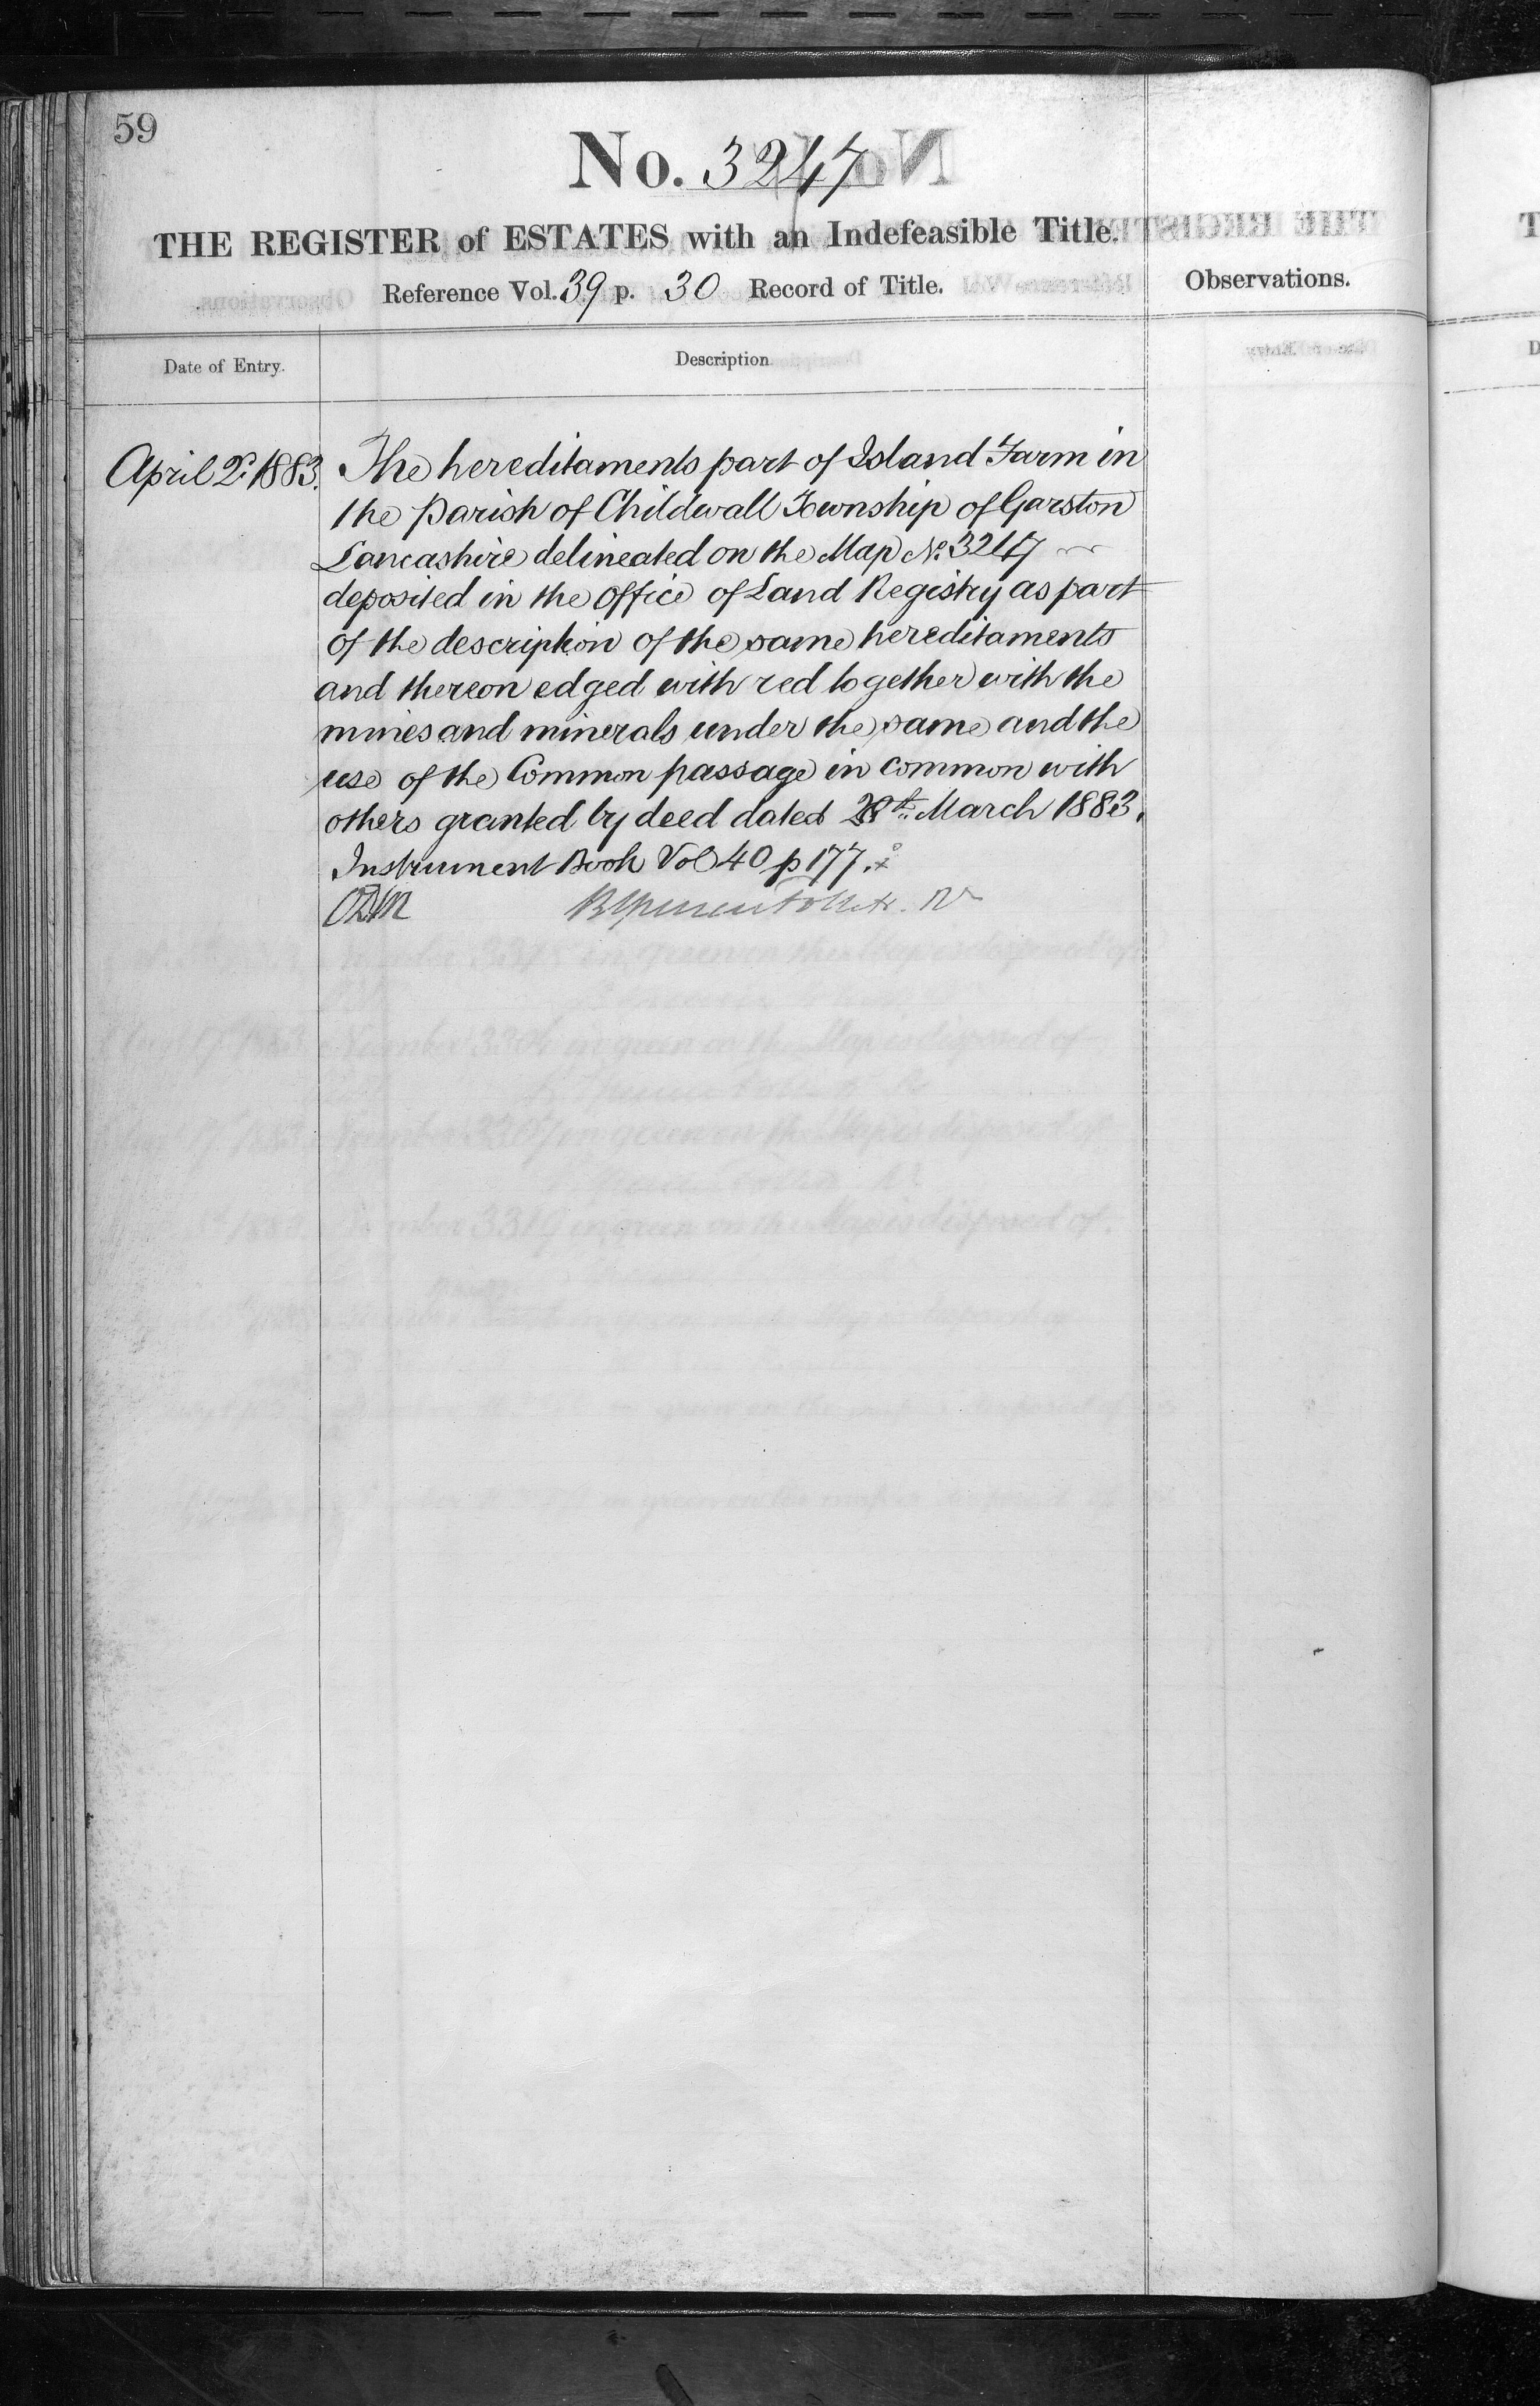 59
No. 3247
THE REGISTER of ESTATES with an Indefeasible Title.
Reference Vol. 39 p. 30 Record of Title.
Observations.
Date of Entry.
Description
April 2d. 1883. The hereditaments part of Island Farm in
the Parish of Childwall Township of Garston
Lancashire delineated on the Map No. 3247
deposited in the Office of Land Registry as part
of the description of the same hereditaments
and thereon edged with red together with the
mines and minerals under the same and the
use of the Common passage in common with
others granted by deed dated March 1883.
Instrument Book Vol 40 p 177.